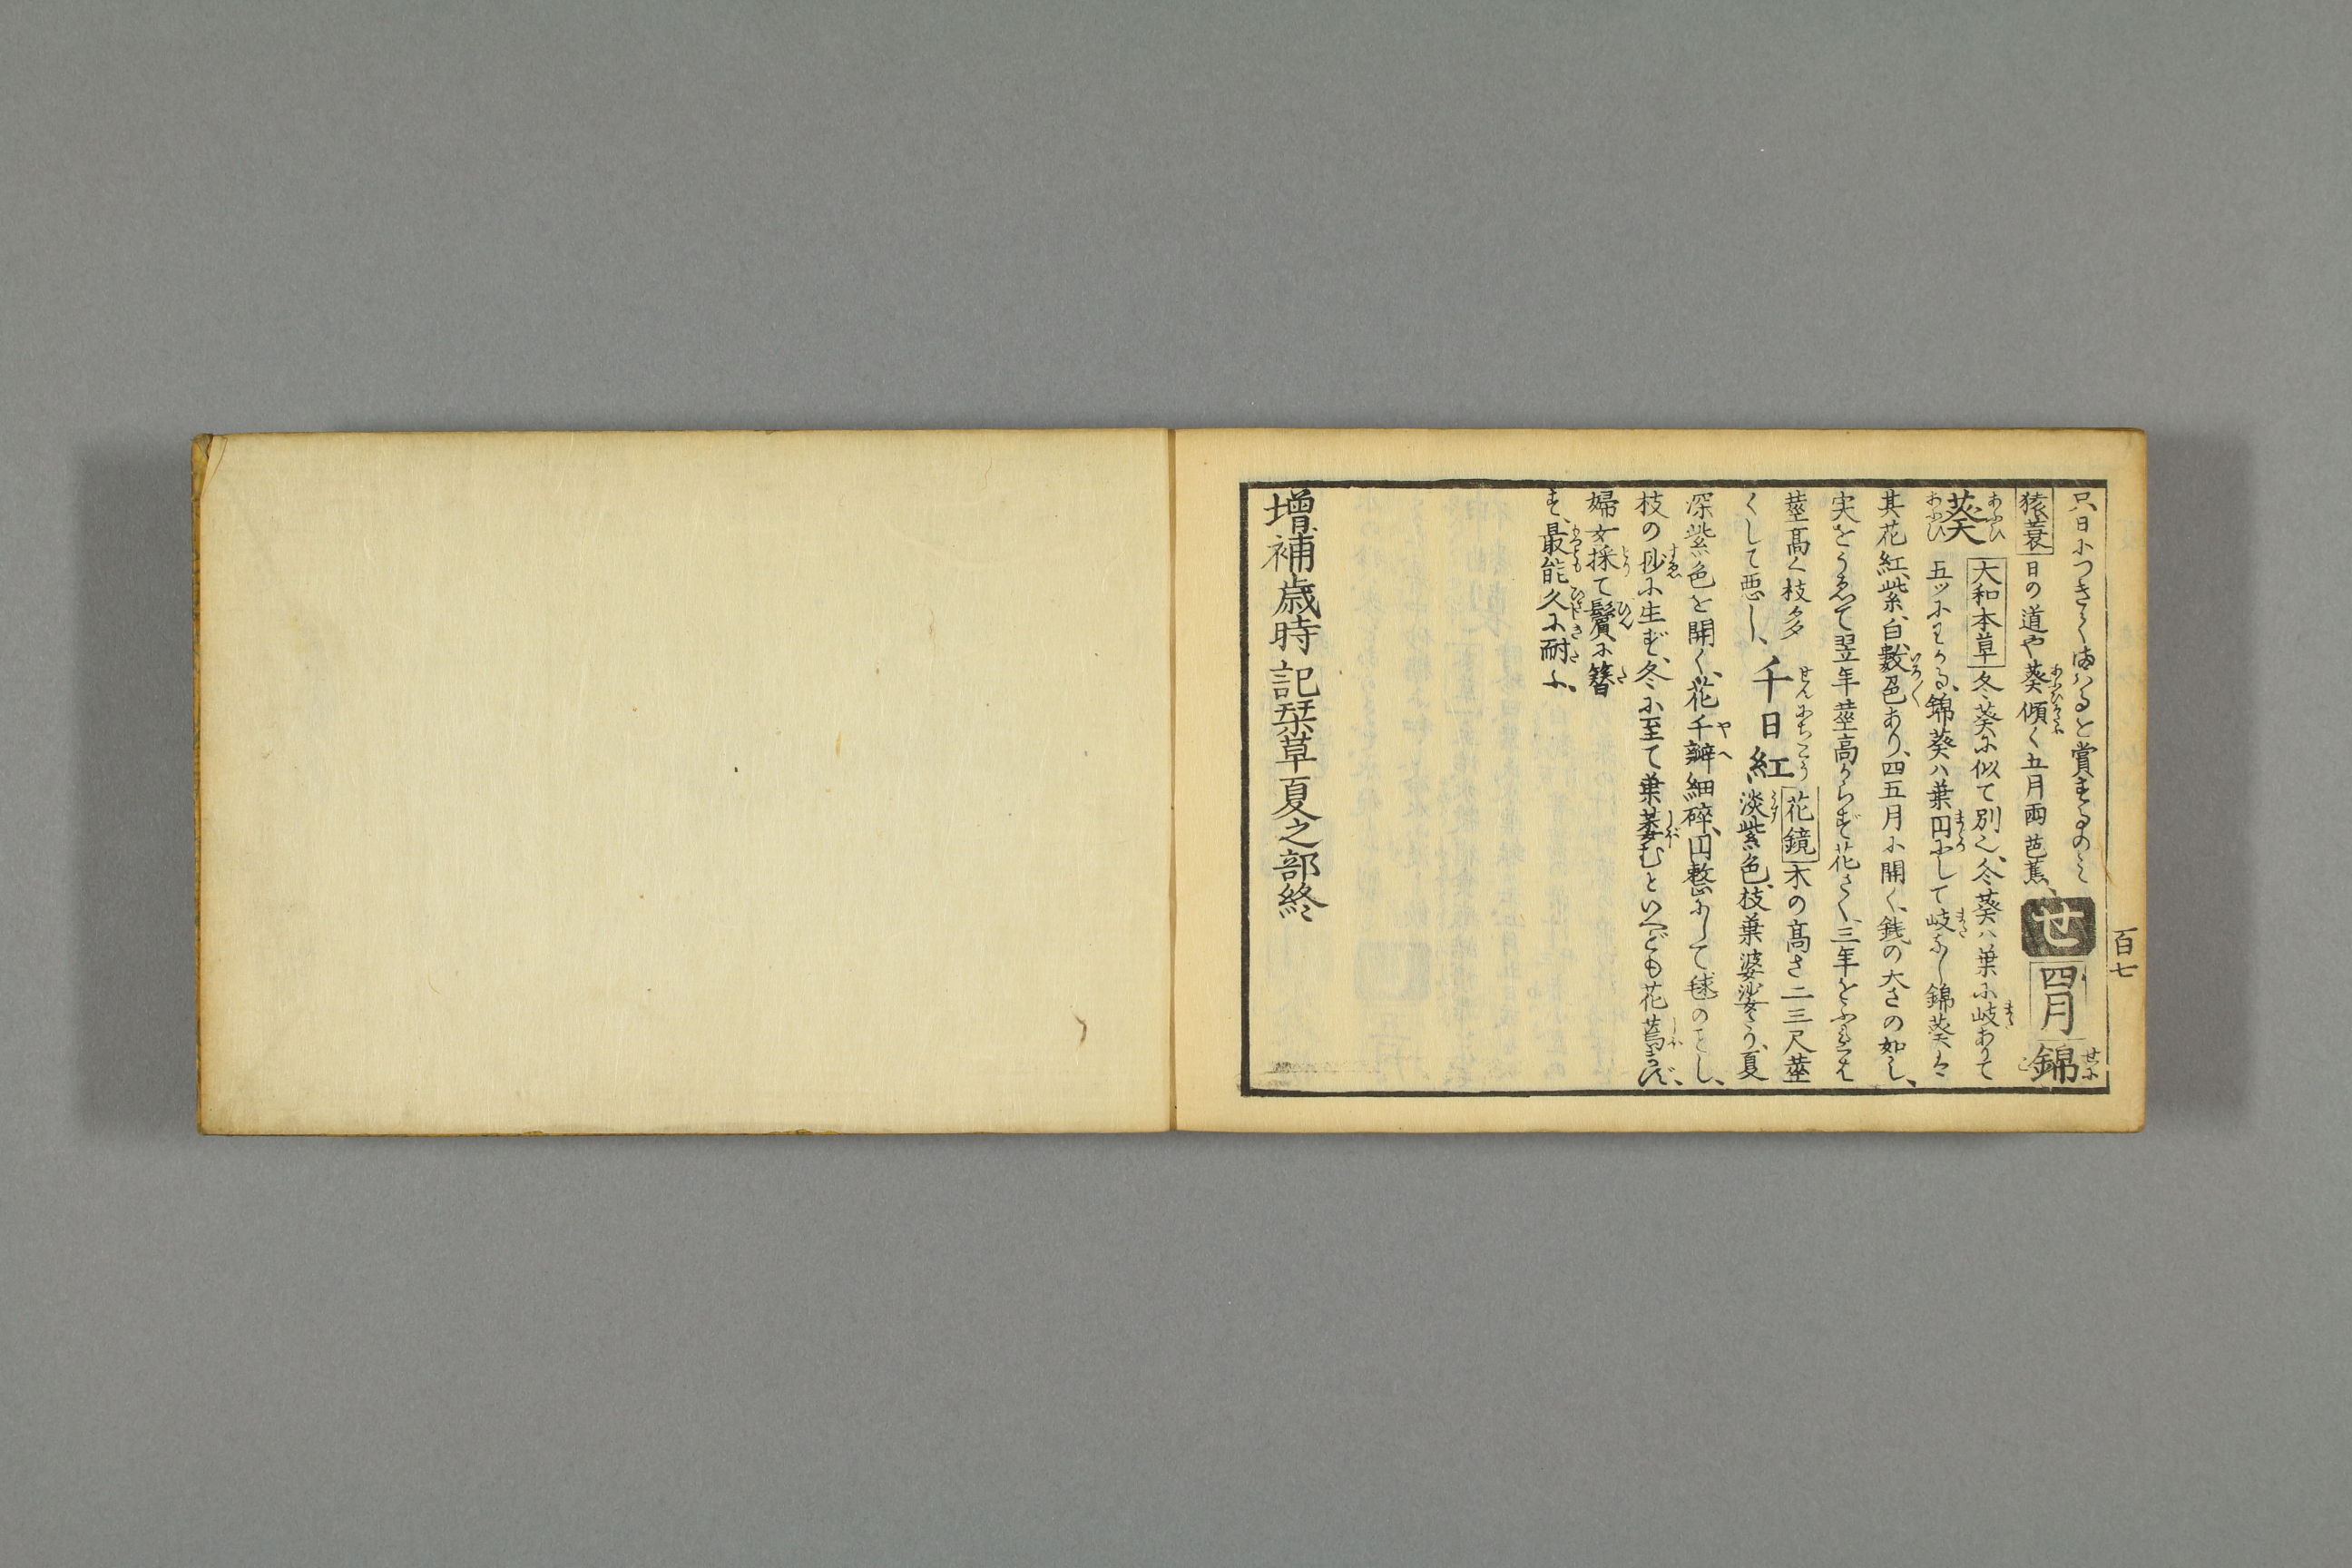 百七
只日につきてまはるを賞するのミ
猿蓑 日の道や葵傾く五月雨 芭蕉 せ 四月 錦
葵 大和本草 冬葵に似て別也、冬葵ハ葉に岐ありて
五ツにわかる、錦葵ハ葉円にして岐なし錦葵は
其花紅、紫、白、数色あり、四五月に開く、銭の大さの如し、
実をうゑて翌年茎高からず花さく、三年をふれは
茎高く枝多くして悪し、
千日紅 花鏡 木の高さ二三尺茎
淡紫色、枝葉婆娑たり、夏
深紫色を開く、花千瓣細砕、円整にして毬のことし、
枝の抄に生ず、冬に至て葉萎むといへども花蔫まず、
婦女採て鬢に簪
す、最能久に耐ふ、
増補歳時記栞草夏之部終